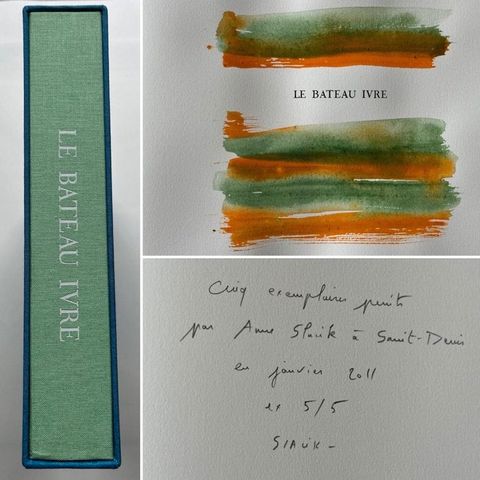 LE BATEAU IVRE
LE BATEAU IVRE
Cinq exemplaires peints
par Anne Slacik à Saint-Denis
en janvier 2011
ex 5/5
SlAcik